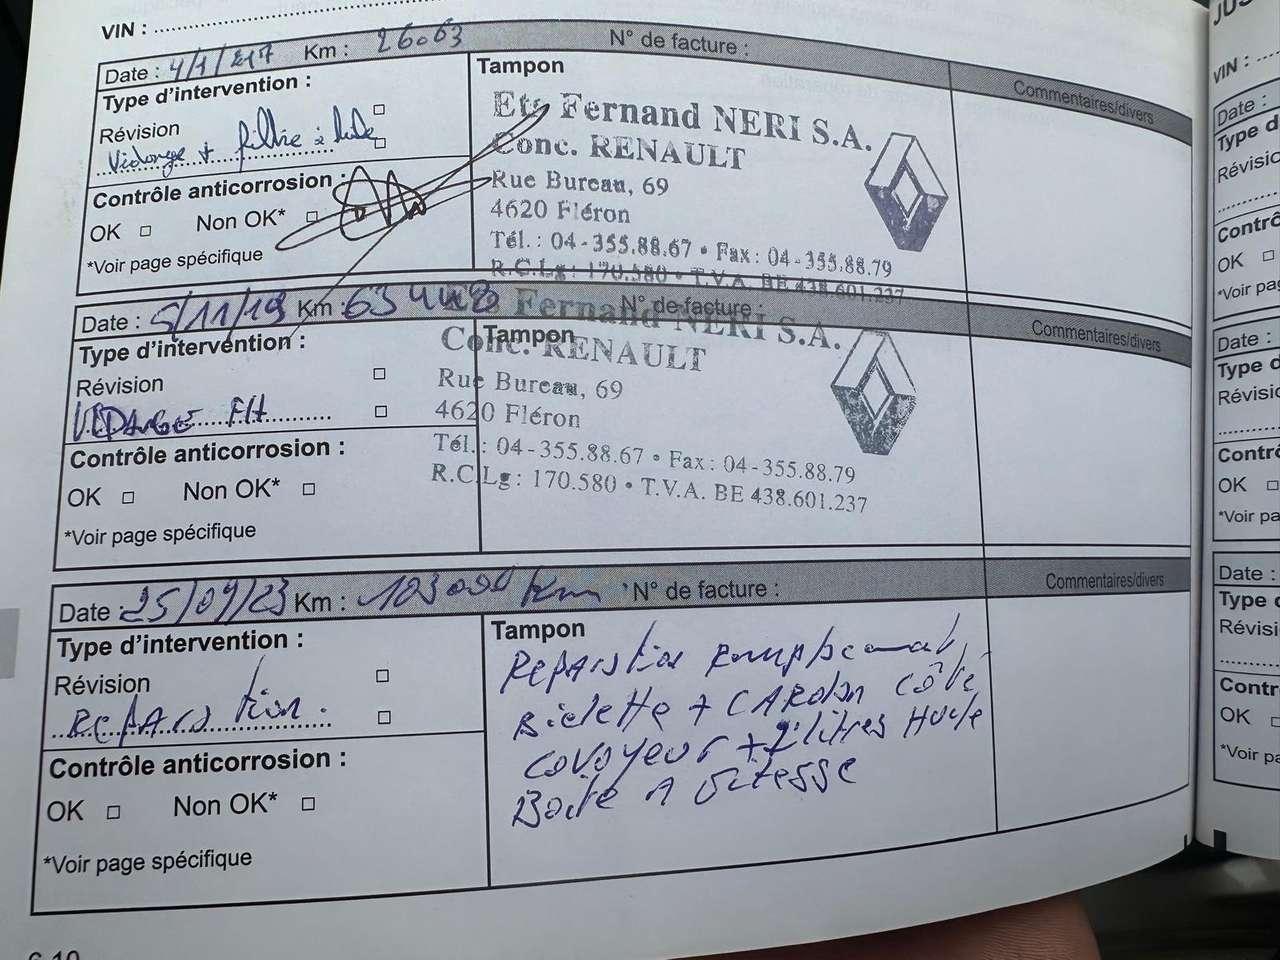 VIN :
Date : 4/1/217 Km : 26063 N° de facture :
Commentaires/divers
Type d'intervention :
Révision
Vidange + filtre à huile
Contrôle anticorrosion :
OK Non OK*
*Voir page spécifique
Tampon
Ets Fernand NERI S.A.
Conc. RENAULT
Rue Bureau, 69
4620 Fléron
Tél. : 04-355.88.67 • Fax : 04-355.88.79
R.C.Lg : 170.580 • T.V.A. BE 438.601.237
Date : 5/11/19 Km : 63448 N° de facture :
Commentaires/divers
Type d'intervention :
Révision
VIDANGE FH
Contrôle anticorrosion :
OK Non OK*
*Voir page spécifique
Tampon
Ets Fernand NERI S.A.
Conc. RENAULT
Rue Bureau, 69
4620 Fléron
Tél. : 04-355.88.67 • Fax : 04-355.88.79
R.C.Lg : 170.580 • T.V.A. BE 438.601.237
Date : 25/09/23 Km : 103000 Km N° de facture :
Commentaires/divers
Type d'intervention :
Révision
Reparation.
Contrôle anticorrosion :
OK Non OK*
*Voir page spécifique
Tampon
Reparation Remplacement
Bielette + CARDAN Côté
COVOYEUR + 2 litres Huile
Boite A Vitesse
6.10
JUS
VIN :
Date :
Type d
Révisic
Contrô
OK
*Voir pa
Date :
Type d
Révisio
Contr
OK
*Voir pa
Date :
Type d
Révisi
Contr
OK
*Voir pa